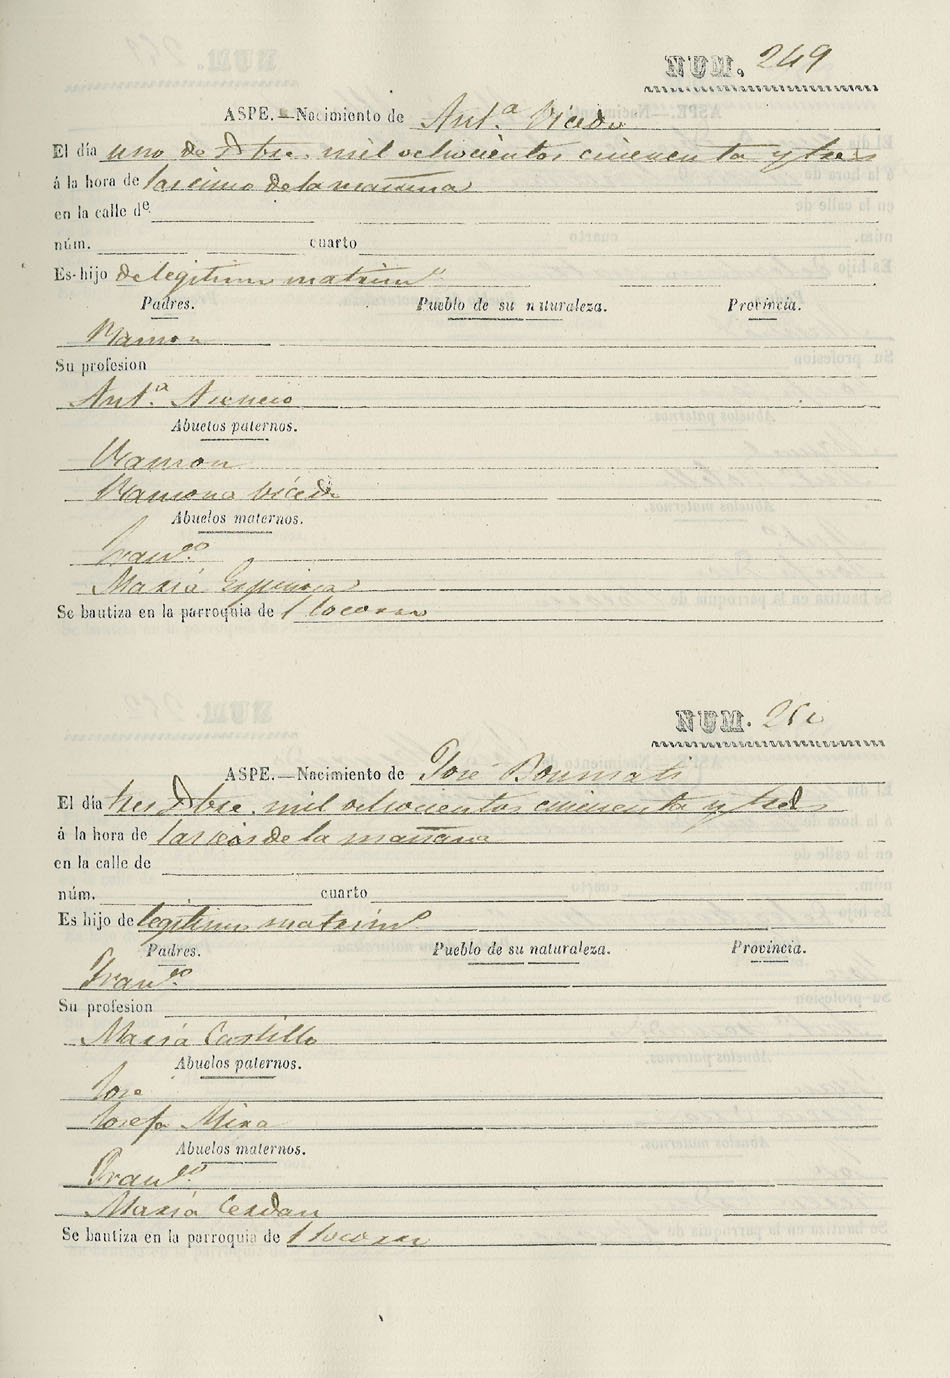 NUM. 249
ASPE.—Nacimiento de Ant.ª Vicedo
El día uno de Dbre. mil ochocientos cincuenta y tres
á la hora de las cinco de la mañana
en la calle de
núm. cuarto
Es hijo de legitimo matrim.º
Padres. Pueblo de su naturaleza. Provincia.
Ramon
Su profesion
Ant.ª
Abuelos paternos.
Ramon
Ramona Vicedo
Abuelos maternos.
Fran.co
Maria
Se bautiza en la parroquia de
NUM. 250
ASPE.—Nacimiento de José
El día tres Dbre. mil ochocientos cincuenta y tres
á la hora de las seis de la mañana
en la calle de
núm. cuarto
Es hijo de legitimo matrim.º
Padres. Pueblo de su naturaleza. Provincia.
Fran.co
Su profesion
Maria Castillo
Abuelos paternos.
Jose
Josefa Mira
Abuelos maternos.
Fran.co
Maria Cerdan
Se bautiza en la parroquia de